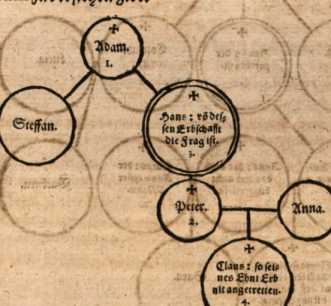 ✠
Adam.
1.
Steffan.
✠
Hans: vō des,
sen Erbschafft
die Frag ist.
3.
✠
Peter.
2.
Anna.
✠
Claus: so sei,
nes Ehni Erb
nit angetretten.
4.